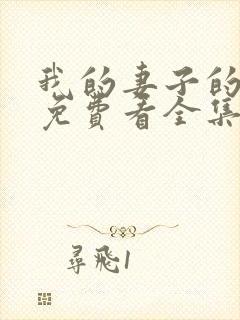 我的妻子的
免费看全集
寻飞1